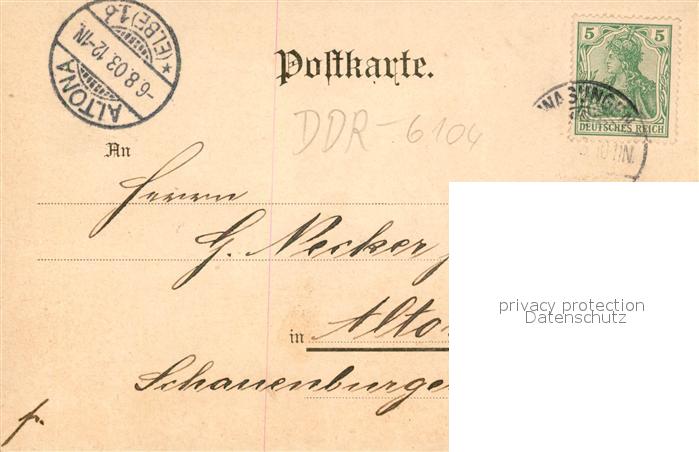 ALTONA
*(ELBE)1b
-6.8.03.12-1N.
Postkarte.
5 5
DEUTSCHES REICH
WASUNGEN
10-11N.
DDR-6104
An
Herrn
G. Necker
in Alto
Schauenburge
privacy protection
Datenschutz